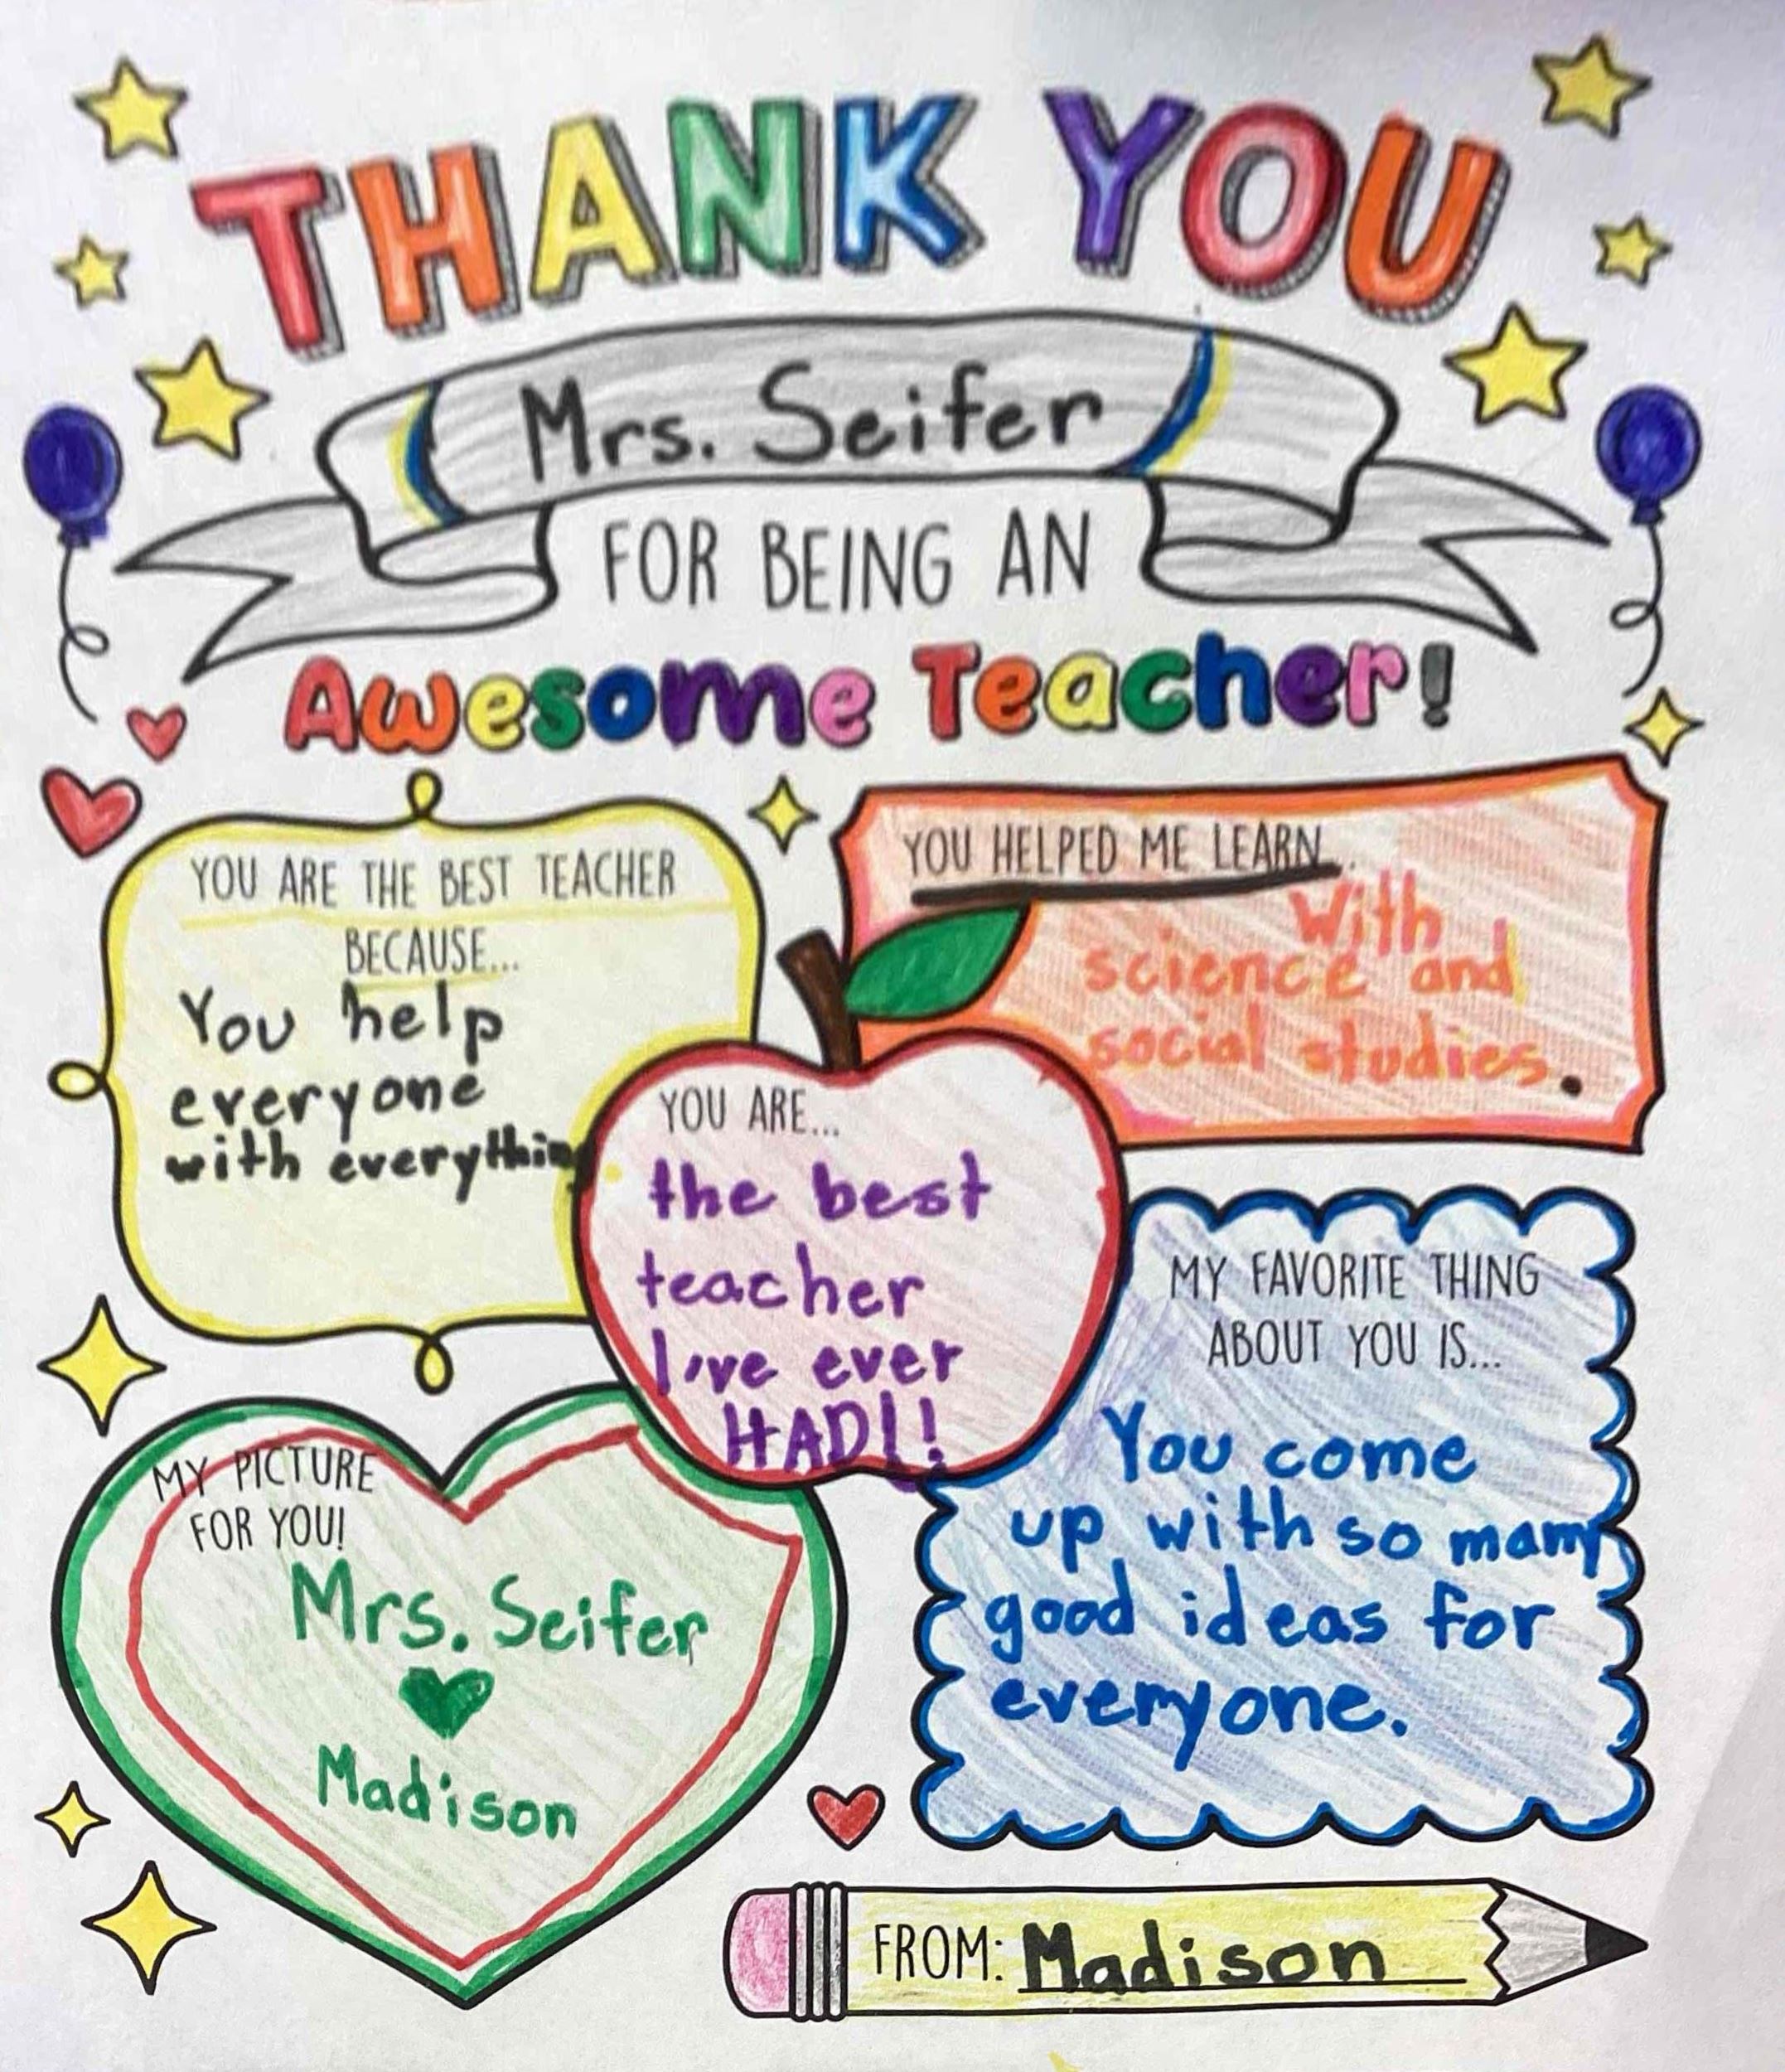 THANK YOU
Mrs. Seifer
FOR BEING AN
Awesome Teacher!
YOU ARE THE BEST TEACHER
BECAUSE...
You help
everyone
with everything
YOU HELPED ME LEARN...
With
science and
social studies.
YOU ARE...
the best
teacher
I,ve ever
HAD!!
MY FAVORITE THING
ABOUT YOU IS...
You come
up with so many
good ideas for
everyone.
MY PICTURE
FOR YOU!
Mrs. Seifer
Madison
FROM: Madison